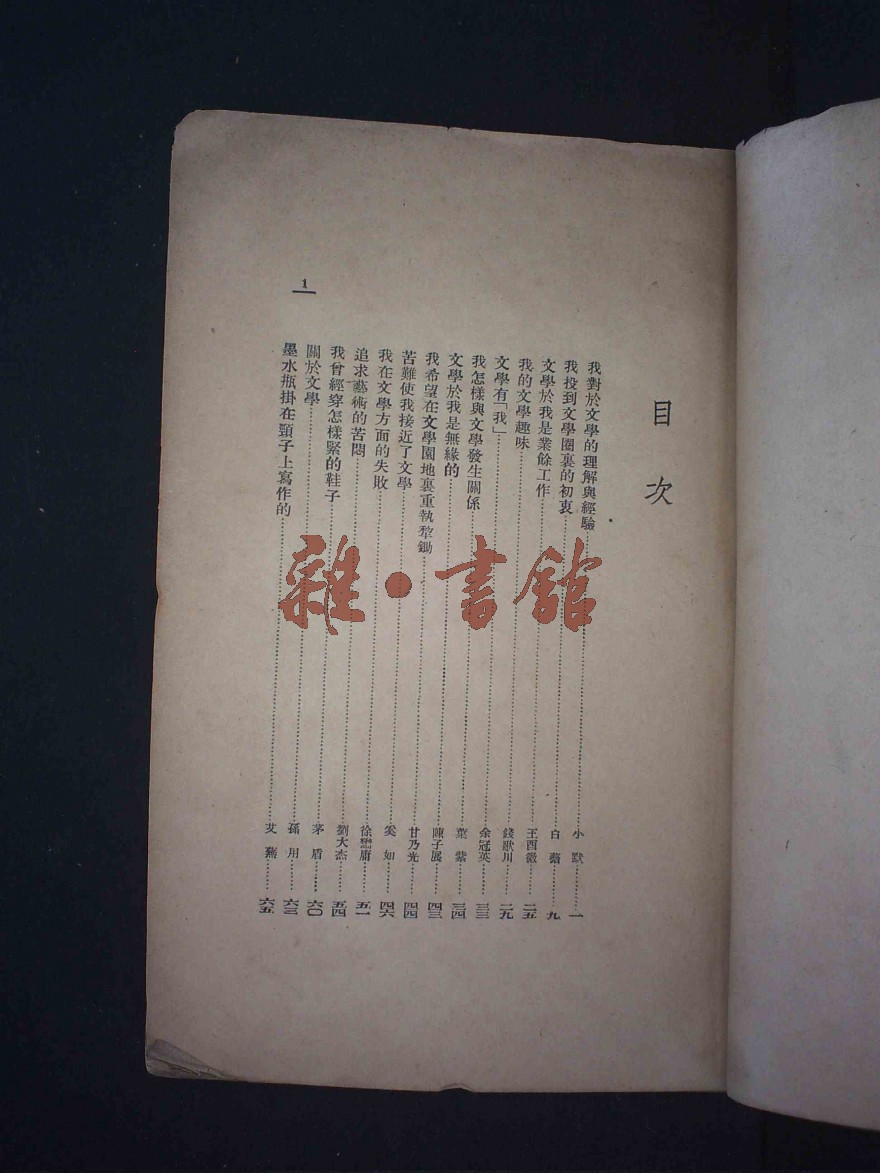 目次
我對於文學的理解與經驗……小默……一
我投到文學圈裏的初衷……白薇……九
文學於我是業餘工作……王西徵……二五
我的文學趣味……錢歌川……二九
文學有「我」……余冠英……三三
我怎樣與文學發生關係……葉紫……三四
文學於我是無緣的……陳子展……四三
我希望在文學園地裏重執犂鋤……甘乃光……四四
苦難使我接近了文學……奚如……四六
我在文學方面的失敗……徐懋庸……五一
追求藝術的苦悶……劉大杰……五四
我曾經穿怎樣緊的鞋子……茅盾……六〇
關於文學……孫用……六三
墨水瓶掛在頸子上寫作的……艾蕪……六五
1
雜·書館